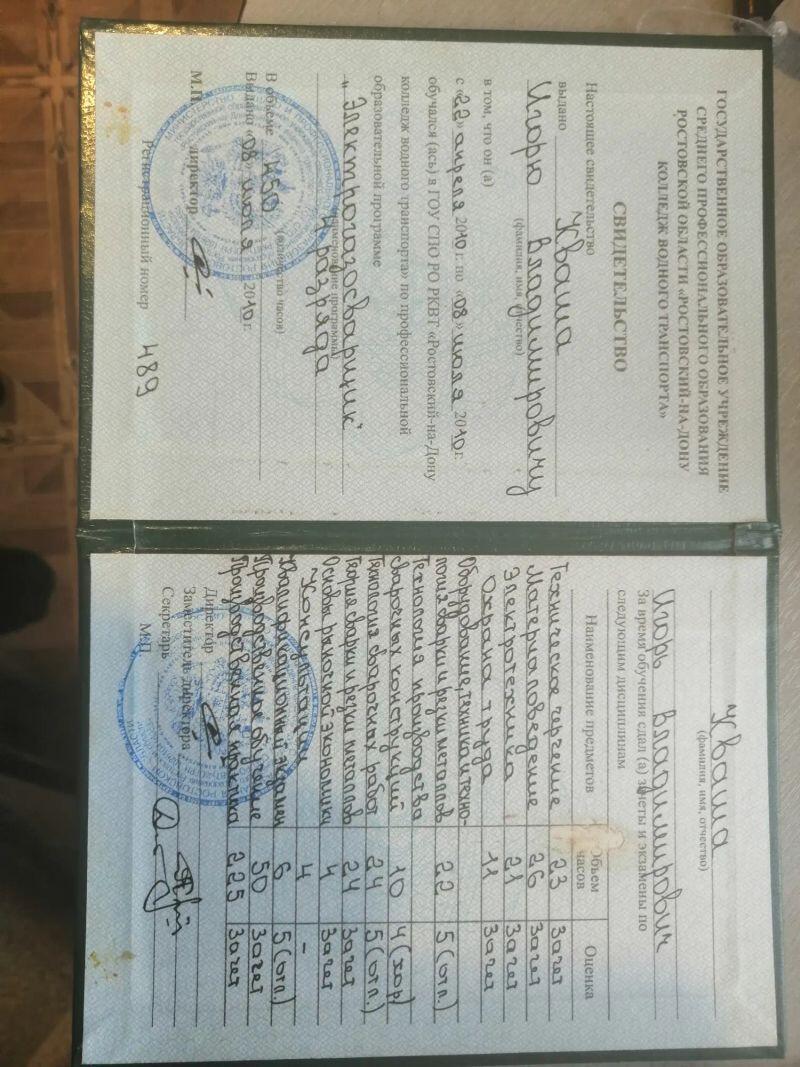 ГОСУДАРСТВЕННОЕ ОБРАЗОВАТЕЛЬНОЕ УЧРЕЖДЕНИЕ
СРЕДНЕГО ПРОФЕССИОНАЛЬНОГО ОБРАЗОВАНИЯ
РОСТОВСКОЙ ОБЛАСТИ «РОСТОВСКИЙ-НА-ДОНУ
КОЛЛЕДЖ ВОДНОГО ТРАНСПОРТА»
СВИДЕТЕЛЬСТВО
Настоящее свидетельство
выдано Кваша
Игорю Владимировичу
(фамилия, имя, отчество)
в том, что он (а)
с «22» апреля 2010 г. по «08» июля 2010 г.
обучался (ась) в ГОУ СПО РО РКВТ «Ростовский-на-Дону
колледж водного транспорта» по профессиональной
образовательной программе
"Электрогазосварщик"
(наименование программы)
4 разряда
В объеме 450
(количество часов)
Выдано «08» июля 2010 г.
М.П. директор
Регистрационный номер 489
Кваша
(фамилия, имя, отчество)
Игорь Владимирович
За время обучения сдал (а) зачеты и экзамены по
следующим дисциплинам
Наименование предметов Объем часов Оценка
Техническое черчение 23 Зачет
Материаловедение 26 Зачет
Электротехника 21 Зачет
Охрана труда 11 Зачет
Оборудование, техника и техно-
логия сварки и резки металлов 22 5 (отл.)
Технология производства
сварочных конструкций 10 4 (хор)
Технология сварочных работ 24 5 (отл.)
Теория сварки и резки металлов 24 Зачет
Основы рыночной экономики 4 Зачет
Консультации 4 -
Квалификационный экзамен 6 5 (отл.)
Производственное обучение 50 Зачет
Производственная практика 225 Зачет
Директор
Заместитель директора
Секретарь
М.П.